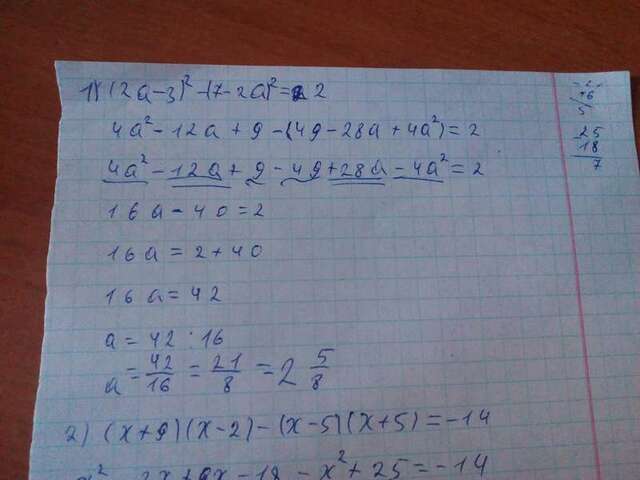 1) (2a-3)² -(7-2a)² = 2
4a² - 12a + 9 - (49 - 28a + 4a²) = 2
4a² - 12a + 9 - 49 + 28a - 4a² = 2
16a - 40 = 2
16a = 2 + 40
16a = 42
a = 42 : 16
a = 42/16 = 21/8 = 2 5/8
2) (x+9)(x-2) - (x-5)(x+5) = -14
x² - 2x + 9x - 18 - x² + 25 = -14
25
18
7